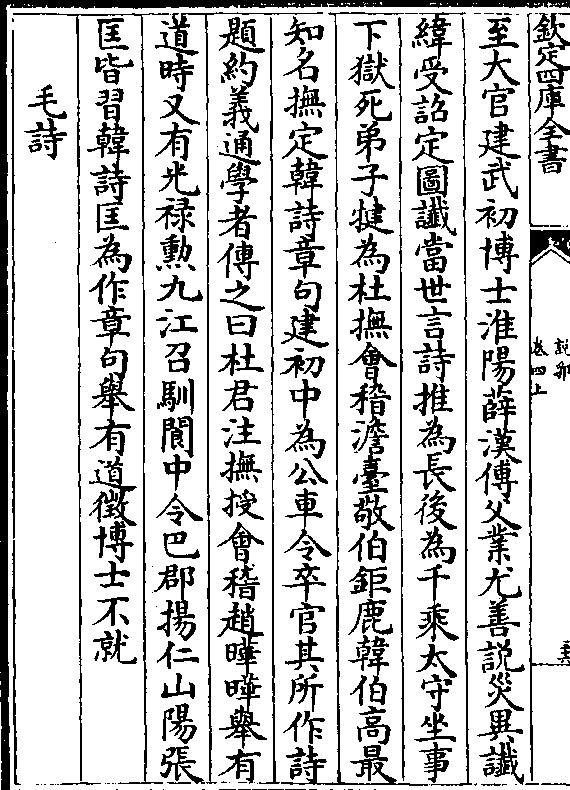 欽定四庫全書
說郛
卷四上
至大官建武初博士淮陽薛漢傅父業尤善説災異讖
緯受詔定圖讖當世言詩推為長後為千乘太守坐事
下獄死弟子犍為杜撫會稽澹臺敬伯鉅鹿韓伯高最
知名撫定韓詩章句建初中為公車令卒官其所作詩
題約義通學者傳之曰杜君注撫授會稽趙曄曄舉有
道時又有光禄勲九江召馴閬中令巴郡揚仁山陽張
匡皆習韓詩匡為作章句舉有道徵博士不就
毛詩